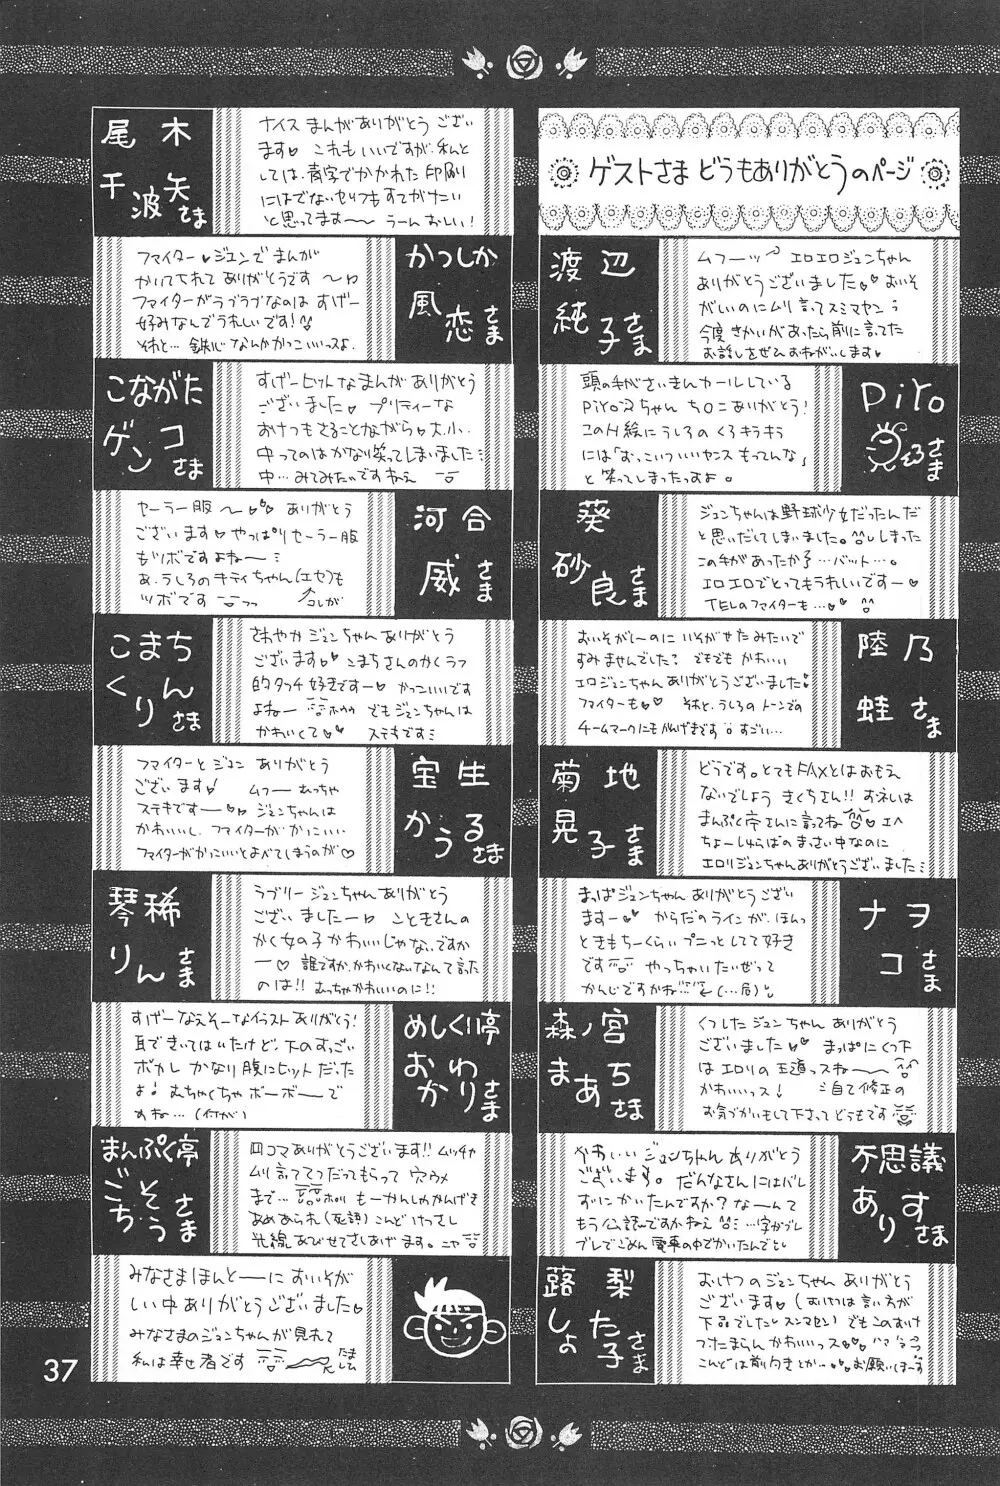 ゲストさま どうもありがとうのページ
渡辺
純子さま
ムフーッ エロエロジュンちゃん
ありがとうございました おいそ
がしいのにムリ言ってスミマセン
今度きかいがあったら前に言ってた
お話しをぜひおねがいします
Piroさま
頭の毛がさいまんカールしている
Piroⵈちゃん
ありがとう!
このH絵にうしろのくろキラキラ
には「お、こいついいセンス もってんな」
と笑ってしまったっすよ。
葵
砂良さま
ジュンちゃんは野球少女だったんだ
と思いだしてしまいました。しまった
この手があったか…バット…。
エロエロでとってもうれしいですー
TELのファイターも…
陸乃
蛙さま
おいそがしーのに いそがせたみたいで
すみませんでした? でもでも かわいい
エロジュンちゃんありがとうございました
ファイターも それと、うしろのトーンでの
チームマークにもかんげきです すごい…
菊地
晃子さま
どうです。とてもFAXとはおもえ
ないでしょう きくちさん!! おれいは
まんぷく亭さんに言ってね エヘ
ちょーしゅらばの まっさい中なのに
エロリジュンちゃんありがとうございました
ナヲコさま
まっぱジュンちゃんありがとうござい
ますー からだのラインが、ほんっ
ときもちーくらい プニっとしてて好き
です やっちゃいたいぜって
かんじですかね (…局)
森ノ宮
まあちさま
くつしたジュンちゃん ありがとう
ございました まっぱにくつ下
は エロリの王道っスねー
かわいいっス! 自て修正の
お気づかいもして下さってどうもです
不思議
ありすさま
かわいい ジュンちゃん ありがとう
ございます。だんなさんにはバレ
ずにかいたんですか? なーんて
もう伝説ですかねえ …字がブレ
ブレでごめん 電車の中でかいたんでと
蕗梨
しょた子さま
おけつのジュンちゃん ありがとう
ございます (おけつは言い方が
下品でした スンマセン) でもこのおけ
つたまらん かわいいっス
こんどは前向きとか… お願いしまーす
尾木
千波矢さま
ナイスまんがありがとうござい
ます これもいいですが、私と
しては、青字でかかれた 印刷
にはでないセリフもすてがたい
と思ってます〜〜 うーんおしい!
かつしか
風恋さま
ファイター ジュンで まんが
かいてくれて ありがとうです 〜
ファイターがラブラブなのは すげー
好みなんで うれしいです!
それと… 鉄じなんかかっこいいっスよ
こながた
ゲンコさま
すげーヒットなまんが ありがとう
ございました プリティーな
おけつもさることながら 大、小、
中ってのは かなり笑ってしまいました
中… みてみたいですねえ
河合
威さま
セーラー服 〜 ありがとう
ございます やっぱりセーラー服
もツボですよねー
あ、うしろのキティちゃん(エセ)も
ツボです コレが
こまち
くりんさま
さわやか ジュンちゃん ありがとう
ございます こまちさんのかくラフ
的タッチ 好きですー かっこいいです
よねー でもジュンちゃんは
かわいくて ステキです
宝生
かうるさま
ファイターと ジュン ありがとう
ございます ムフー むっちゃ
ステキですー ジュンちゃんは
かわいいし、ファイターが かっこいい…
ファイターがかっこいいとよべてしまうのが
琴稀
りんさま
ラブリー ジュンちゃん ありがとう
ございましたー ことききんの
かく女の子かわいいじゃないですか
ー 誰ですか、かわいくないなんて言った
のは!! むっちゃかわいいのに!!
めしくい亭
おかわりさま
すげーなえそーなイラスト ありがとう!
耳できいてはいたけど、下のすっごい
ボカし かなり腹にヒットだった
よ! むちゃくちゃ ボーボー〜で
すね…(何が)
まんぷく亭
ごちそうさま
四コマありがとうございます!! ムッチャ
ムリ言ってつだってもらって 穴ウメ
まで… もーかんしゃかんげき
あめあられ(死語)こんど けっさし
光線 あびせてさしあげます。ニャ
みなさまほんとーーに おいそが
しい中ありがとうございました
みなさまのジュンちゃんが見れて
私は幸せ者です
37